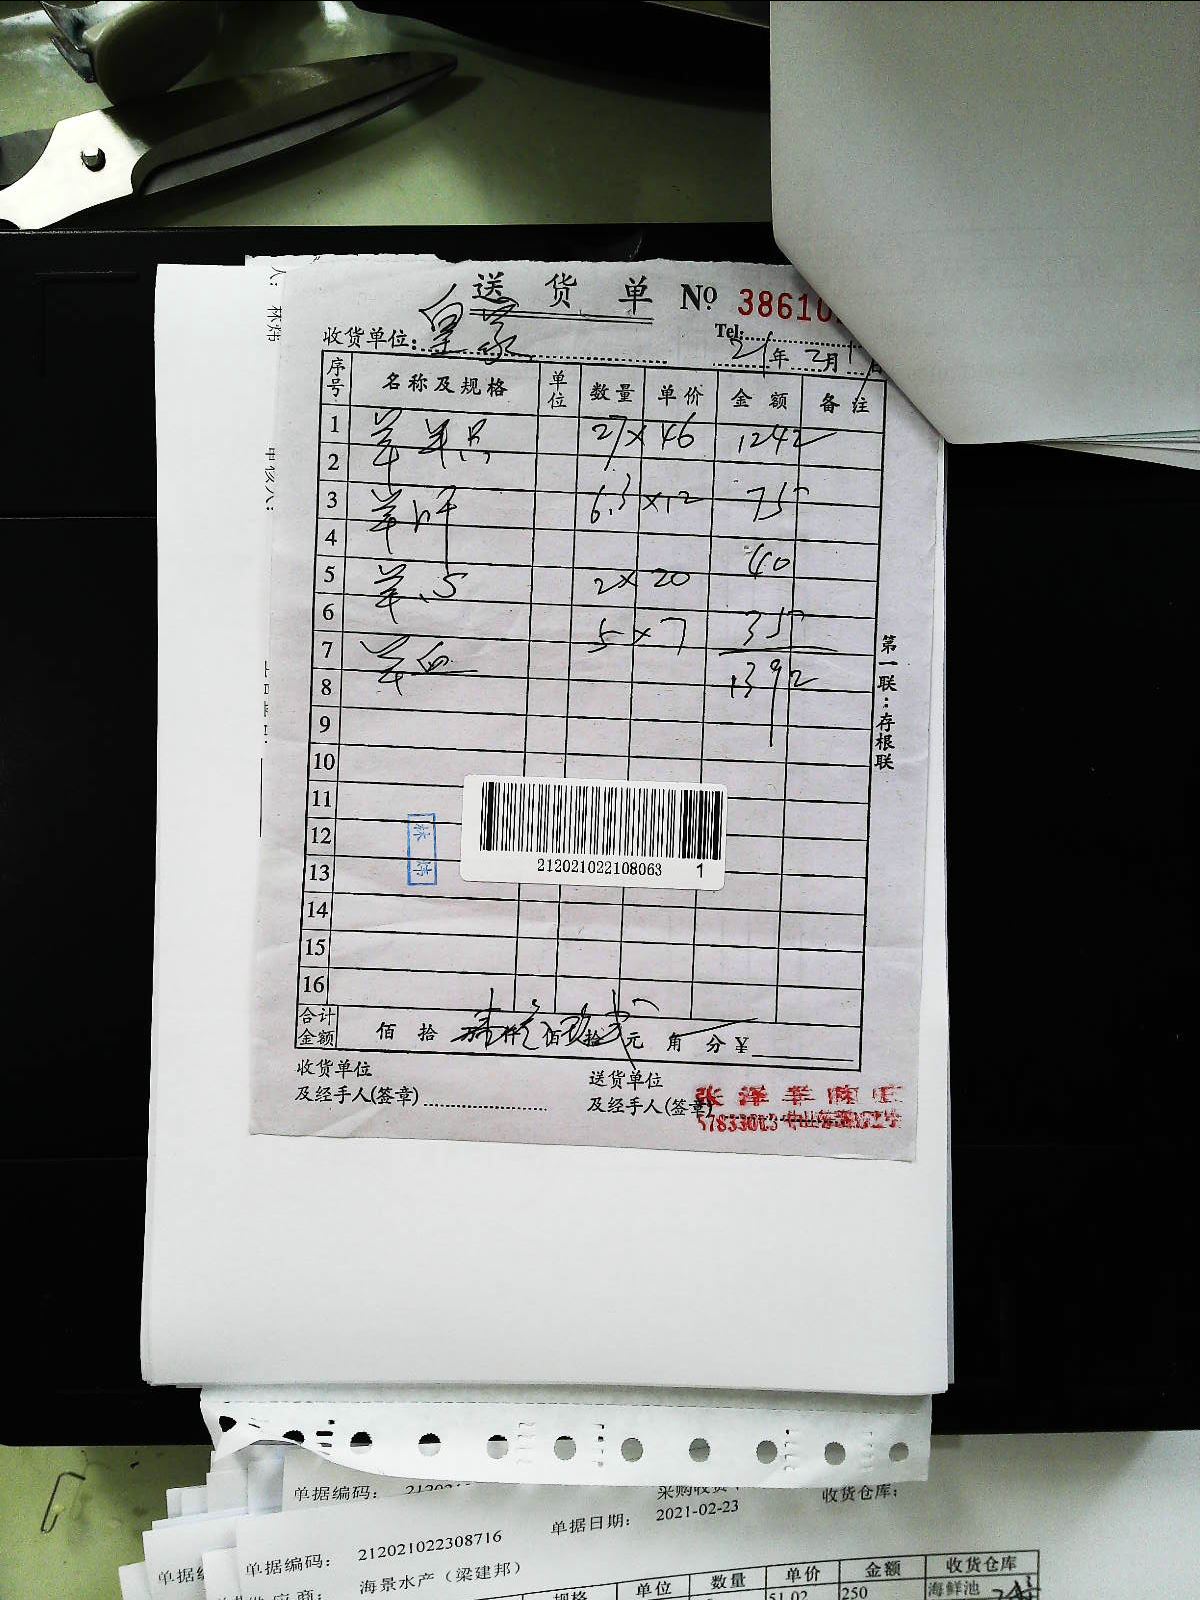 人： 林炜
送货单 Nº 38610
Tel:
收货单位： 皇家 21年2月1日
序号 名称及规格 单位 数量 单价 金额 备注
1 羊 27 × 46 1242
2
3 羊肝 6.3 × 12 75
4 40
5 羊心 2 × 20
6 5 × 7 35
7 羊血
8 1392
9
10
11
12
13
14
15
16
第一联：存根联
林炜
212021022108063 1
合计金额 佰 拾 壹仟叁佰玖拾贰元 角 分 ¥
收货单位 送货单位
及经手人(签章) 及经手人(签章)
张泽羊肉店
57833013
单据编码： 采购收货 收货仓库：
单据编码： 212021022308716 单据日期： 2021-02-23
海景水产（梁建邦）
规格 单位 数量 单价 金额 收货仓库
51.02 250 海鲜池